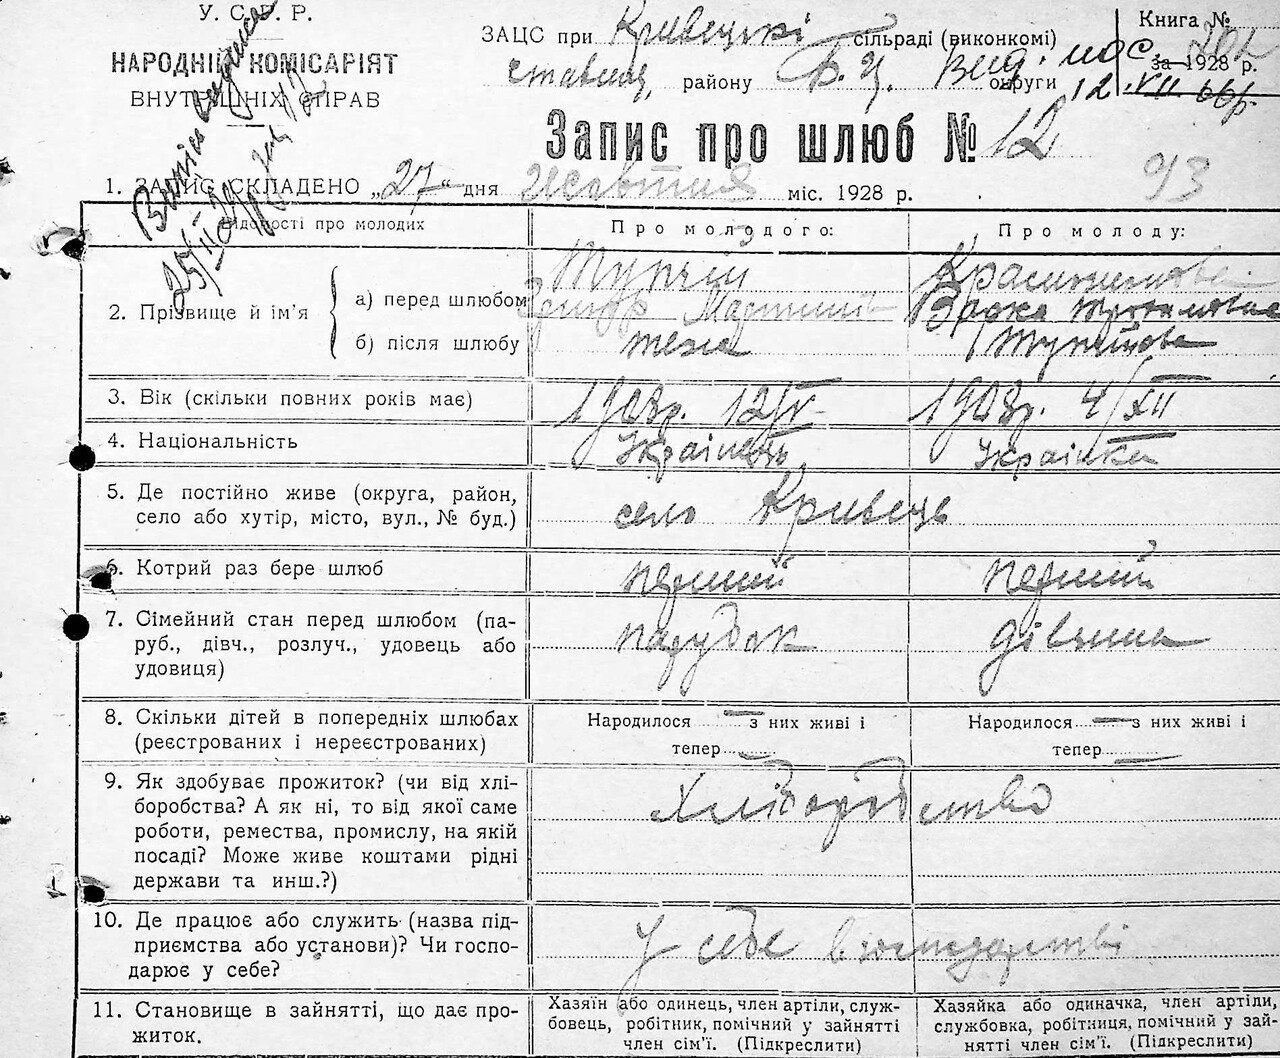 У. С. Р. Р.
НАРОДНІЙ КОМІСАРІЯТ
ВНУТРІШНІХ СПРАВ
ЗАЦС при Кривецькі сільраді (виконкомі)
Ставищ. району Б. Ц. округи
Книга №
за 1928 р.
12 VII
Запис про шлюб № 12
93
1. ЗАПИС СКЛАДЕНО „27“ дня жовтня міс. 1928 р.
Відомості про молодих
Про молодого:
Про молоду:
2. Прізвище й ім'я
а) перед шлюбом
Тупчій
Мартинів
Варка
б) після шлюбу
теж
3. Вік (скільки повних років має)
1908р. 12/V
1908р. 4/XII
4. Національність
Українець
Українка
5. Де постійно живе (округа, район, село або хутір, місто, вул., № буд.)
село Кривець
6. Котрий раз бере шлюб
перший
перший
7. Сімейний стан перед шлюбом (па-
руб., дівч., розлуч., удовець або
удовиця)
парубок
дівчина
8. Скільки дітей в попередніх шлюбах
(реєстрованих і нереєстрованих)
Народилося — з них живі і
тепер
Народилося — з них живі і
тепер
9. Як здобуває прожиток? (чи від хлі-
боробства? А як ні, то від якої саме
роботи, ремества, промислу, на якій
посаді? Може живе коштами рідні
держави та инш.?)
Хліборобство
10. Де працює або служить (назва під-
приємства або установи)? Чи госпо-
дарює у себе?
У себе в господарстві
11. Становище в зайнятті, що дає про-
житок.
Хазяїн або одинець, член артілі, служ-
бовець, робітник, помічний у зайнятті
член сім'ї. (Підкреслити)
Хазяйка або одиначка, член артілі,
службовка, робітниця, помічний у зай-
нятті член сім'ї. (Підкреслити)